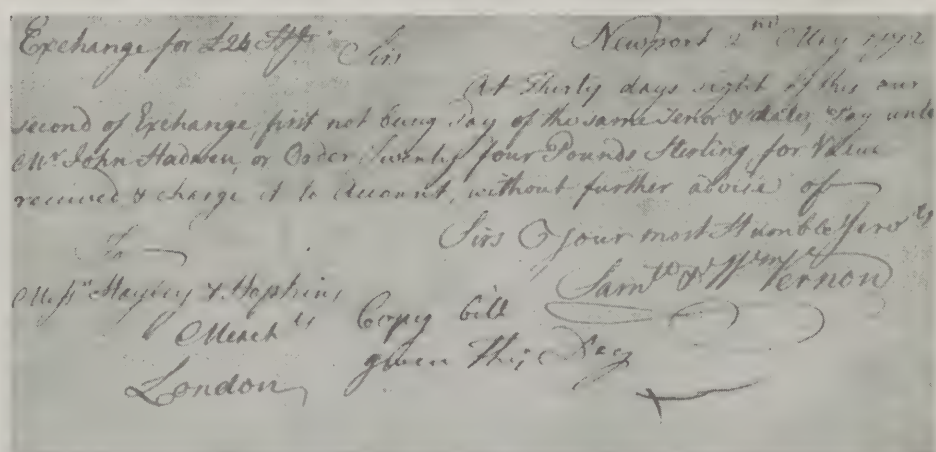 Exchange for £24 Stg. Sirs Newport 2nd May 1772
At Thirty days sight of this our
second of Exchange, first not being Pay of the same Tenor & date, Pay unto
Mr. John Hadwen, or Order Twenty four Pounds Sterling, for Value
received & charge it to Account, without further advice of
Sirs Your most Humble Servts
To Saml. & Wm. Vernon
Messrs Hayley & Hopkins
Merchts Copy bill
London given This Day